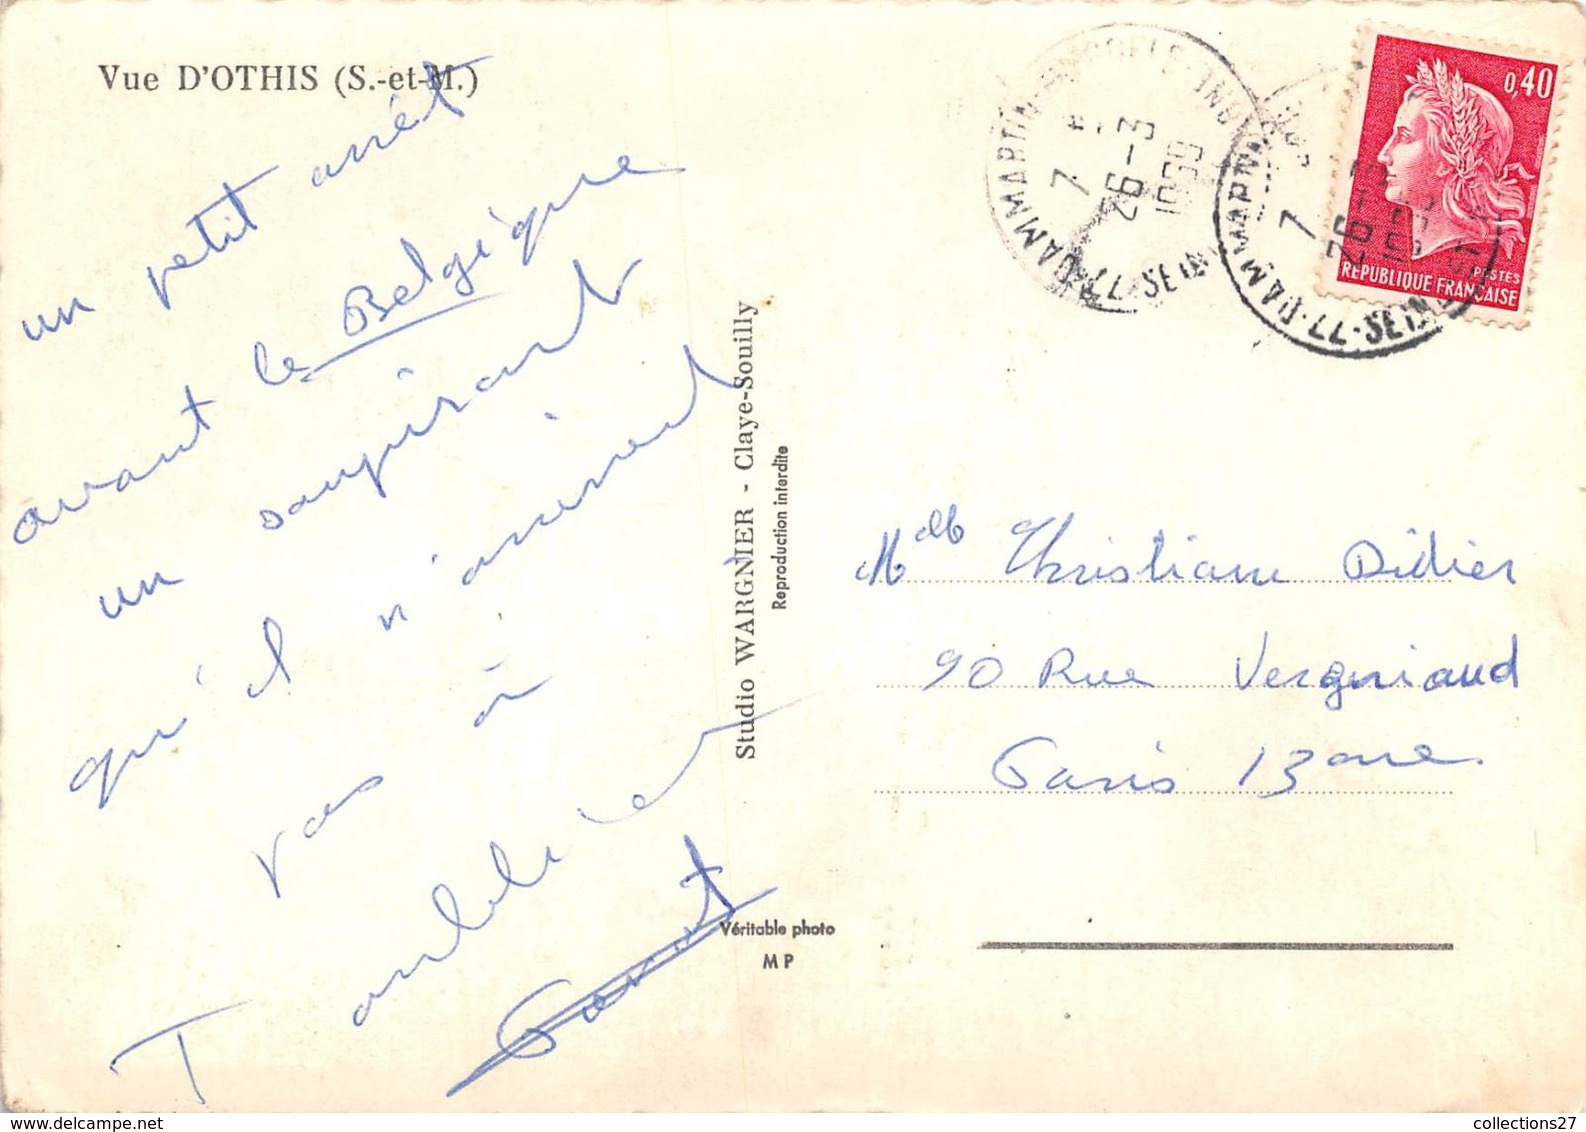 Vue D'OTHIS (S.-et-M.)
un petit arrêt
avant le Belgique
un soupirant
qu'il n'arrivent
pas à
oublier
T
Studio WARGNIER - Claye-Souilly
Reproduction interdite
Véritable photo
MP
DAMMARTIN
7
26-3
77-SEINE
DAMMARTIN
7
26-3
77-SEINE
0,40
POSTES
REPUBLIQUE FRANÇAISE
Mdlle Christiane Didier
90 Rue Vergniaud
Paris 13eme
collections27